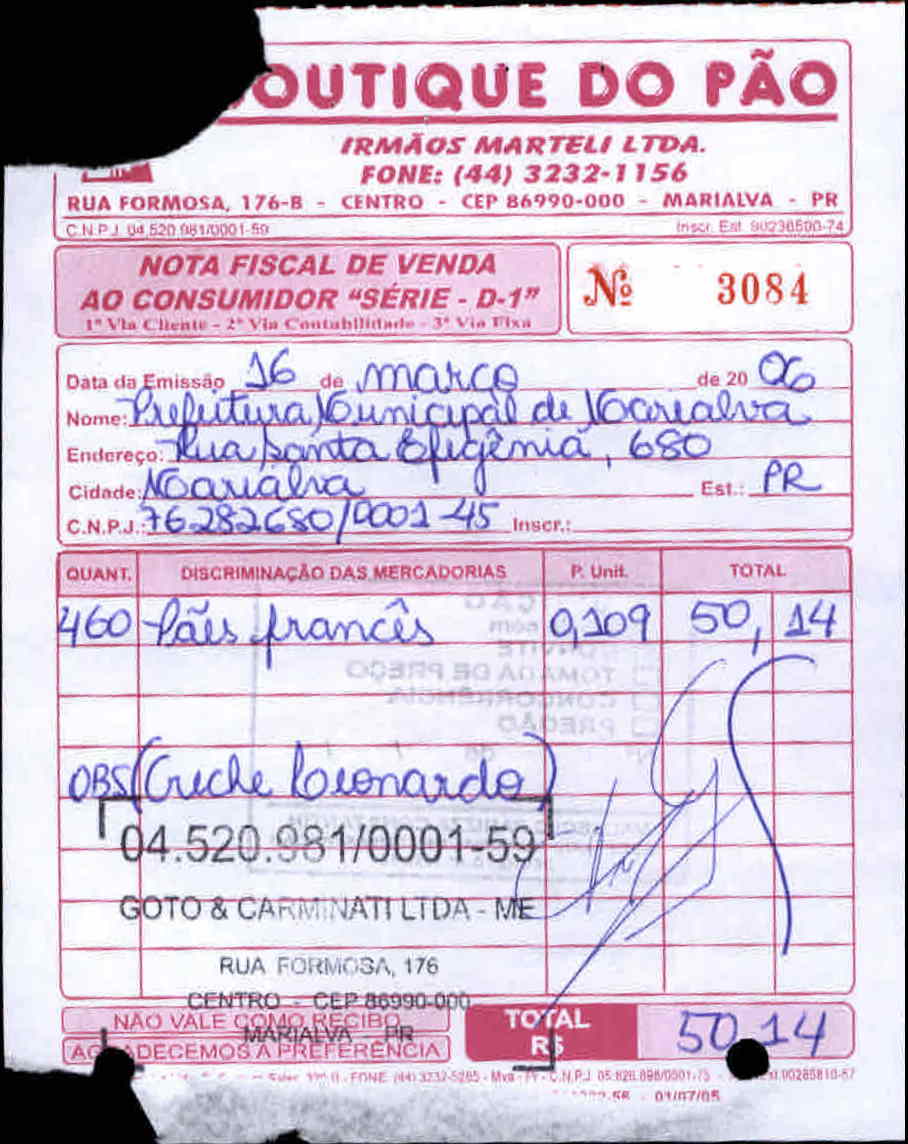 OUTIQUE DO PÃO
IRMÃOS MARTELI LTDA.
FONE: (44) 3232-1156
RUA FORMOSA, 176-B - CENTRO - CEP 86990-000 - MARIALVA - PR
C.N.P.J. 04.520.981/0001-59 Inscr. Est. 90236500-74
NOTA FISCAL DE VENDA
AO CONSUMIDOR "SÉRIE - D-1"
1ª Via Cliente - 2ª Via Contabilidade - 3ª Via Fixa
Nº 3084
Data da Emissão 16 de março de 20 06
Nome: Prefeitura Municipal de Marialva
Endereço: Rua Santa Efigênia, 680
Cidade: Marialva Est.: PR
C.N.P.J.: 76282680/0001-45 Inscr.:
QUANT. DISCRIMINAÇÃO DAS MERCADORIAS P. Unit. TOTAL
460 Pães francês 0,109 50,14
TOMADA DE PREÇO
CONCORRÊNCIA
PREGÃO
OBS (Creche Leonardo)
04.520.981/0001-59
GOTO & CARMINATI LTDA - ME
RUA FORMOSA, 176
CENTRO - CEP 86990-000
MARIALVA PR
NÃO VALE COMO RECIBO
AGRADECEMOS A PREFERÊNCIA
TOTAL
R$
50,14
FONE (44) 3232-5265 - Mva - PR - C.N.P.J. 05.826.898/0001-75
01/07/05